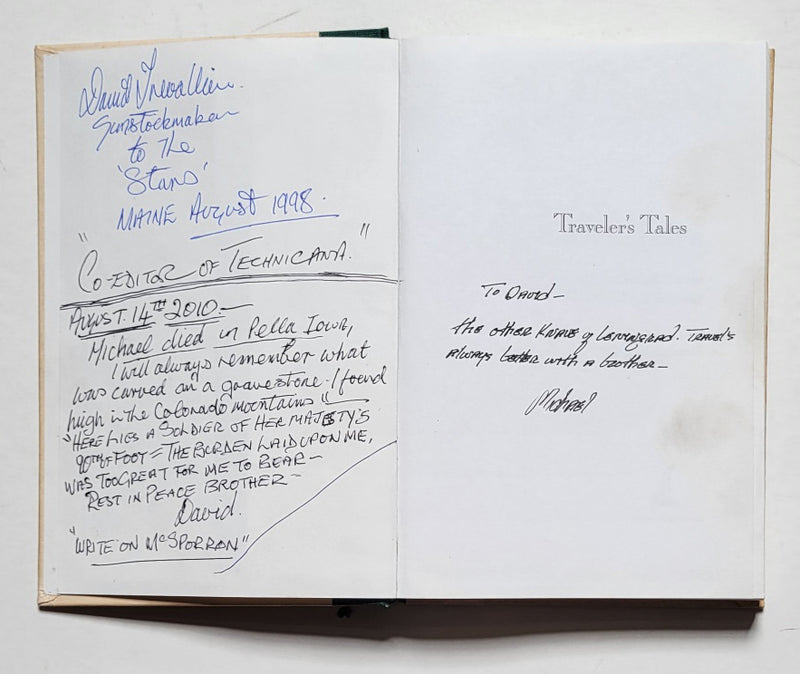 David Trevallion.
Gunstockmaker
to The
'Stars'
MAINE August 1998.
"Co-EDITOR OF TECHNICANA."
August 14TH 2010.—
Michael died in Pella Iowa,
I will always remember what
was carved on a gravestone I found
high in the Colorado mountains "
"HERE LIES A SOLDIER OF HER MAJESTY'S
90TH OF FOOT = THE BURDEN LAID UPON ME,
WAS TOO GREAT FOR ME TO BEAR—
REST IN PEACE BROTHER—
David.
"WRITE ON McSPORRAN"
Traveler's Tales
To David—
the other Knave of Leningrad. Travel's
always better with a brother—
Michael